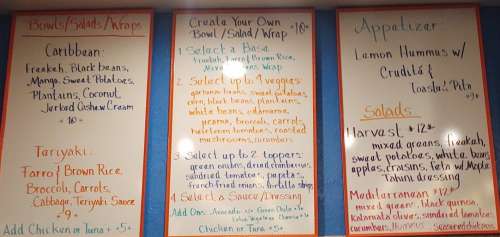 Bowls/Salads/Wraps
Caribbean:
Freekah, Black beans,
Mango, Sweet Potatoes,
Plantains, Coconut,
Jerked Cashew Cream
~10~
Tariyaki:
Farro & Brown Rice
Broccoli, Carrots,
Cabbage, Teriyaki Sauce
~9~
Add Chicken or Tuna +5+
Create Your Own
Bowl/Salad/Wrap ~10~
1. Select a Base
Freekah, Farro & Brown Rice,
Mixed Greens, Wrap
2. Select up to 4 veggies:
garbanzo beans, sweet potatoes
corn, black beans, plantains,
white beans, edamame,
broccoli, carrots,
heirloom tomatoes, roasted
mushrooms, cucumbers
3. Select up to 2 toppers:
green onions, dried cranberries,
sundried tomatoes, pepitas,
french fried onions, tortilla strips
4. Select a Sauce/Dressing
Add Ons: Avocado
Chicken or Tuna +5+
Appetizer:
Lemon Hummus w/
Crudité &
Toasted Pita
~9~
Salads:
Harvest *12*
mixed greens, freekah,
sweet potatoes, white beans,
apples, craisins, feta w/ Maple
Tahini dressing
Mediterranean *12*
mixed greens, black quinoa,
Kalamata olives, sundried tomatoes
cucumbers, Hummus